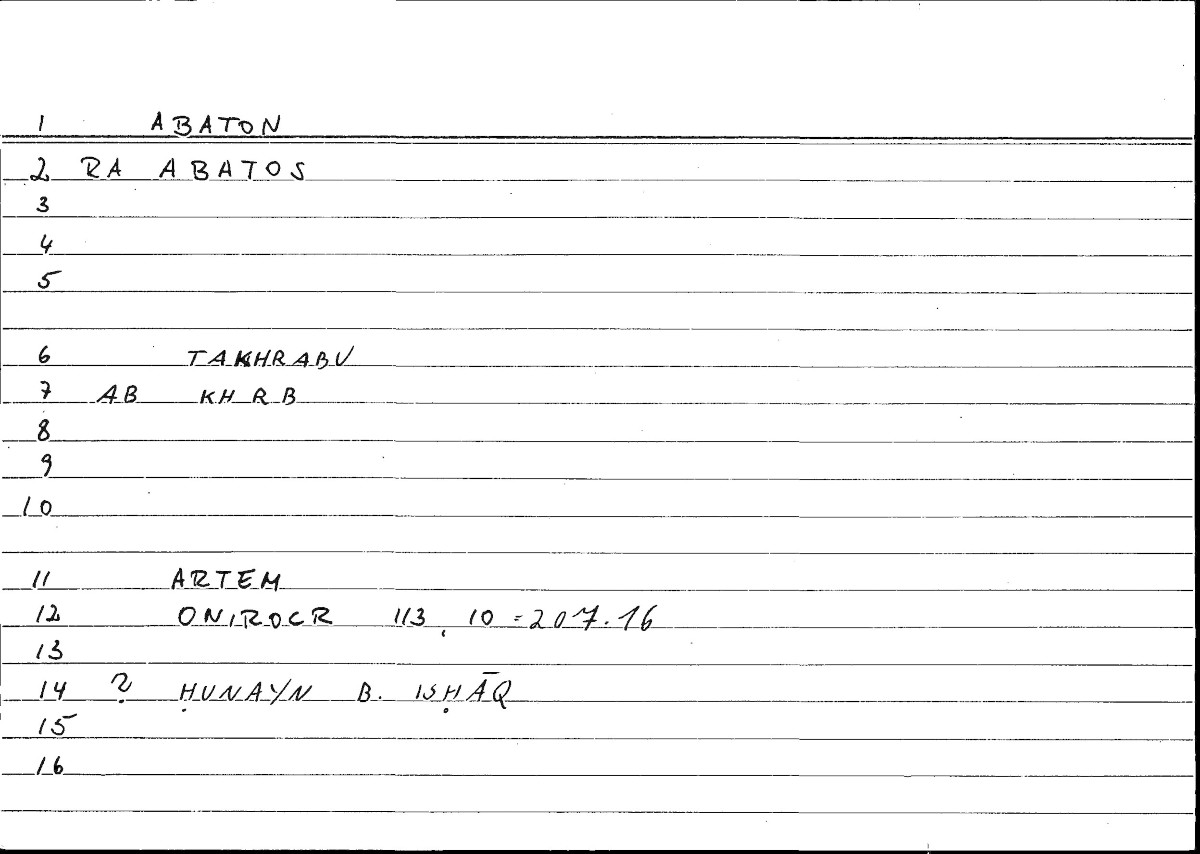 1 ABATON
2 RA ABATOS
3
4
5
6 TAKHRABU
7 AB KHRB
8
9
10
11 ARTEM
12 ONIROCR 113, 10 = 207.16
13
14 ? ḤUNAYN B. ISḤĀQ
15
16